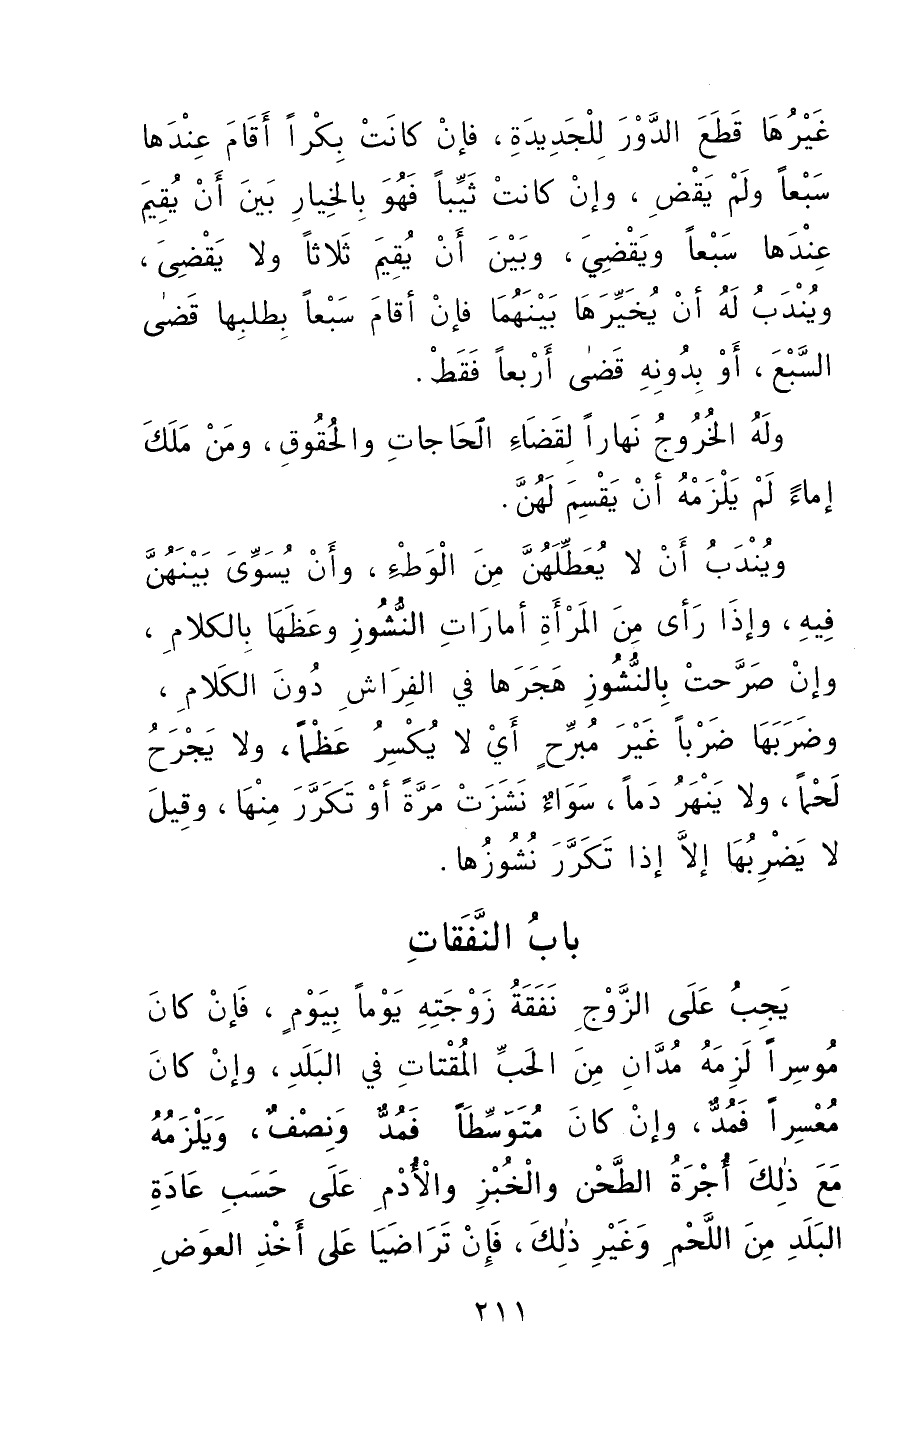 غَيْرُهَا قَطَعَ الدَّوْرَ لِلْجَدِيدَةِ، فإنْ كانَتْ بِكْراً أَقَامَ عِنْدَها
سَبْعاً ولَمْ يَقْضِ، وإنْ كانتْ ثَيِّباً فَهُوَ بِالخِيارِ بَينَ أَنْ يُقِيمَ
عِنْدَها سَبْعاً ويَقْضِيَ، وبَيْنَ أَنْ يُقِيمَ ثَلاثاً ولا يَقْضِىَ،
ويُنْدَبُ لَهُ أنْ يُخَيِّرَهَا بَيْنَهُمَا فإنْ أقامَ سَبْعاً بِطلبِها قَضٰى
السَّبْعَ، أَوْ بِدُونِهِ قَضٰى أَرْبعاً فَقَطْ.
ولَهُ الخُرُوجُ نَهاراً لِقَضَاءِ الحَاجاتِ والحُقُوقِ، ومَنْ مَلَكَ
إماءً لَمْ يَلْزَمْهُ أنْ يَقْسِمَ لَهُنَّ.
ويُنْدَبُ أَنْ لا يُعَطِّلَهُنَّ مِنَ الْوَطْءِ، وأَنْ يُسَوِّىَ بَيْنَهُنَّ
فِيهِ، وإذَا رَأى مِنَ المَرْأَةِ أمارَاتِ النُّشُوزِ وعَظَهَا بِالكلامِ،
وإنْ صَرَّحتْ بِالنُّشُوزِ هَجَرَها في الفِرَاشِ دُونَ الكَلامِ،
وضَرَبَهَا ضَرْباً غَيْرَ مُبرِّحٍ أَيْ لا يُكْسِرُ عَظْماً، ولا يَجْرَحُ
لَحْماً، ولا يَنْهَرُ دَماً، سَوَاءٌ نَشَزَتْ مَرَّةً أوْ تَكَرَّرَ مِنْهَا، وقِيلَ
لا يَضْرِبُهَا إلاَّ إذا تَكَرَّرَ نُشُوزُها.
بابُ النَّفَقاتِ
يَجِبُ عَلَى الزَّوْجِ نَفَقَةُ زَوْجَتِهِ يَوْماً بِيَوْمٍ، فَإنْ كانَ
مُوسِراً لَزِمَهُ مُدَّانِ مِنَ الحَبِّ المُقْتاتِ في البَلَدِ، وإنْ كانَ
مُعْسِراً فَمُدٌّ، وإنْ كانَ مُتَوَسِّطَاً فَمُدٌّ وَنِصْفٌ، وَيَلْزَمُهُ
مَعَ ذٰلِكَ أُجْرَةُ الطَّحْنِ والْخُبْزِ والْأُدْمِ عَلَى حَسَبِ عَادَةِ
البَلَدِ مِنَ اللَّحْمِ وَغَيْرِ ذٰلِكَ، فَإِنْ تَرَاضَيَا عَلى أَخْذِ العِوَضِ
٢١١